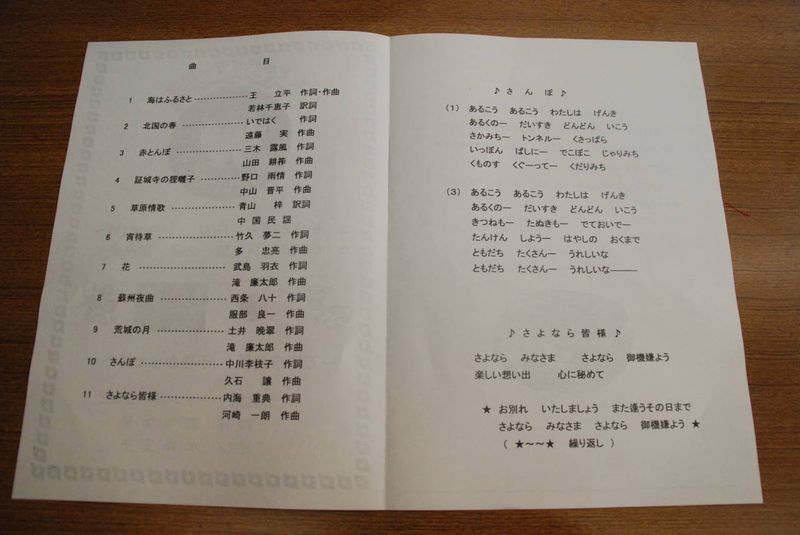 曲 目
1 海はふるさと・・・・・・・・・・・・・・・・王 立平 作詞・作曲
若林千恵子 訳詞
2 北国の春・・・・・・・・・・・・・・・・いではく 作詞
遠藤 実 作曲
3 赤とんぼ・・・・・・・・・・・・・・・・三木 露風 作詞
山田 耕筰 作曲
4 証城寺の狸囃子・・・・・・・・・・野口 雨情 作詞
中山 晋平 作曲
5 草原情歌・・・・・・・・・・・・・・・・青山 梓 訳詞
中 国 民 謡
6 宵待草・・・・・・・・・・・・・・・・竹久 夢二 作詞
多 忠亮 作曲
7 花・・・・・・・・・・・・・・・・武島 羽衣 作詞
滝 廉太郎 作曲
8 蘇州夜曲・・・・・・・・・・・・・・・・西条 八十 作詞
服部 良一 作曲
9 荒城の月・・・・・・・・・・・・・・・・土井 晩翠 作詞
滝 廉太郎 作曲
10 さんぽ・・・・・・・・・・・・・・・・中川李枝子 作詞
久石 譲 作曲
11 さよなら皆様・・・・・・・・・・・・内海 重典 作詞
河崎 一朗 作曲
♪ さ ん ぽ ♪
(1) あるこう あるこう わたしは げんき
あるくのー だいすき どんどん いこう
さかみちー トンネルー くさっぱら
いっぽん ばしにー でこぼこ じゃりみち
くものす くぐーってー くだりみち
(3) あるこう あるこう わたしは げんき
あるくのー だいすき どんどん いこう
きつねもー たぬきもー でておいでー
たんけん しようー はやしの おくまで
ともだち たくさんー うれしいな
ともだち たくさんー うれしいな―――
♪ さよなら 皆様 ♪
さよなら みなさま さよなら 御機嫌よう
楽しい想い出 心に秘めて
★ お別れ いたしましょう また逢うその日まで
さよなら みなさま さよなら 御機嫌よう ★
( ★～～★ 繰り返し )